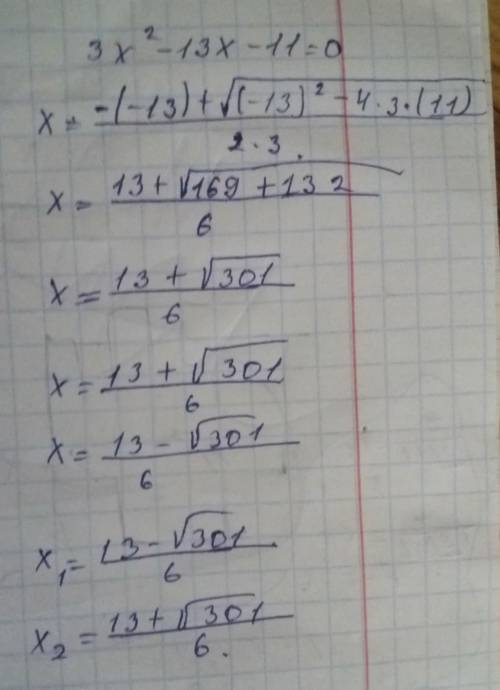 3x² - 13x - 11 = 0
x = (-(-13) + √((-13)² - 4·3·(11))) / (2·3)
x = (13 + √(169 + 132)) / 6
x = (13 + √301) / 6
x = (13 + √301) / 6
x = (13 - √301) / 6
x₁ = (13 - √301) / 6
x₂ = (13 + √301) / 6.